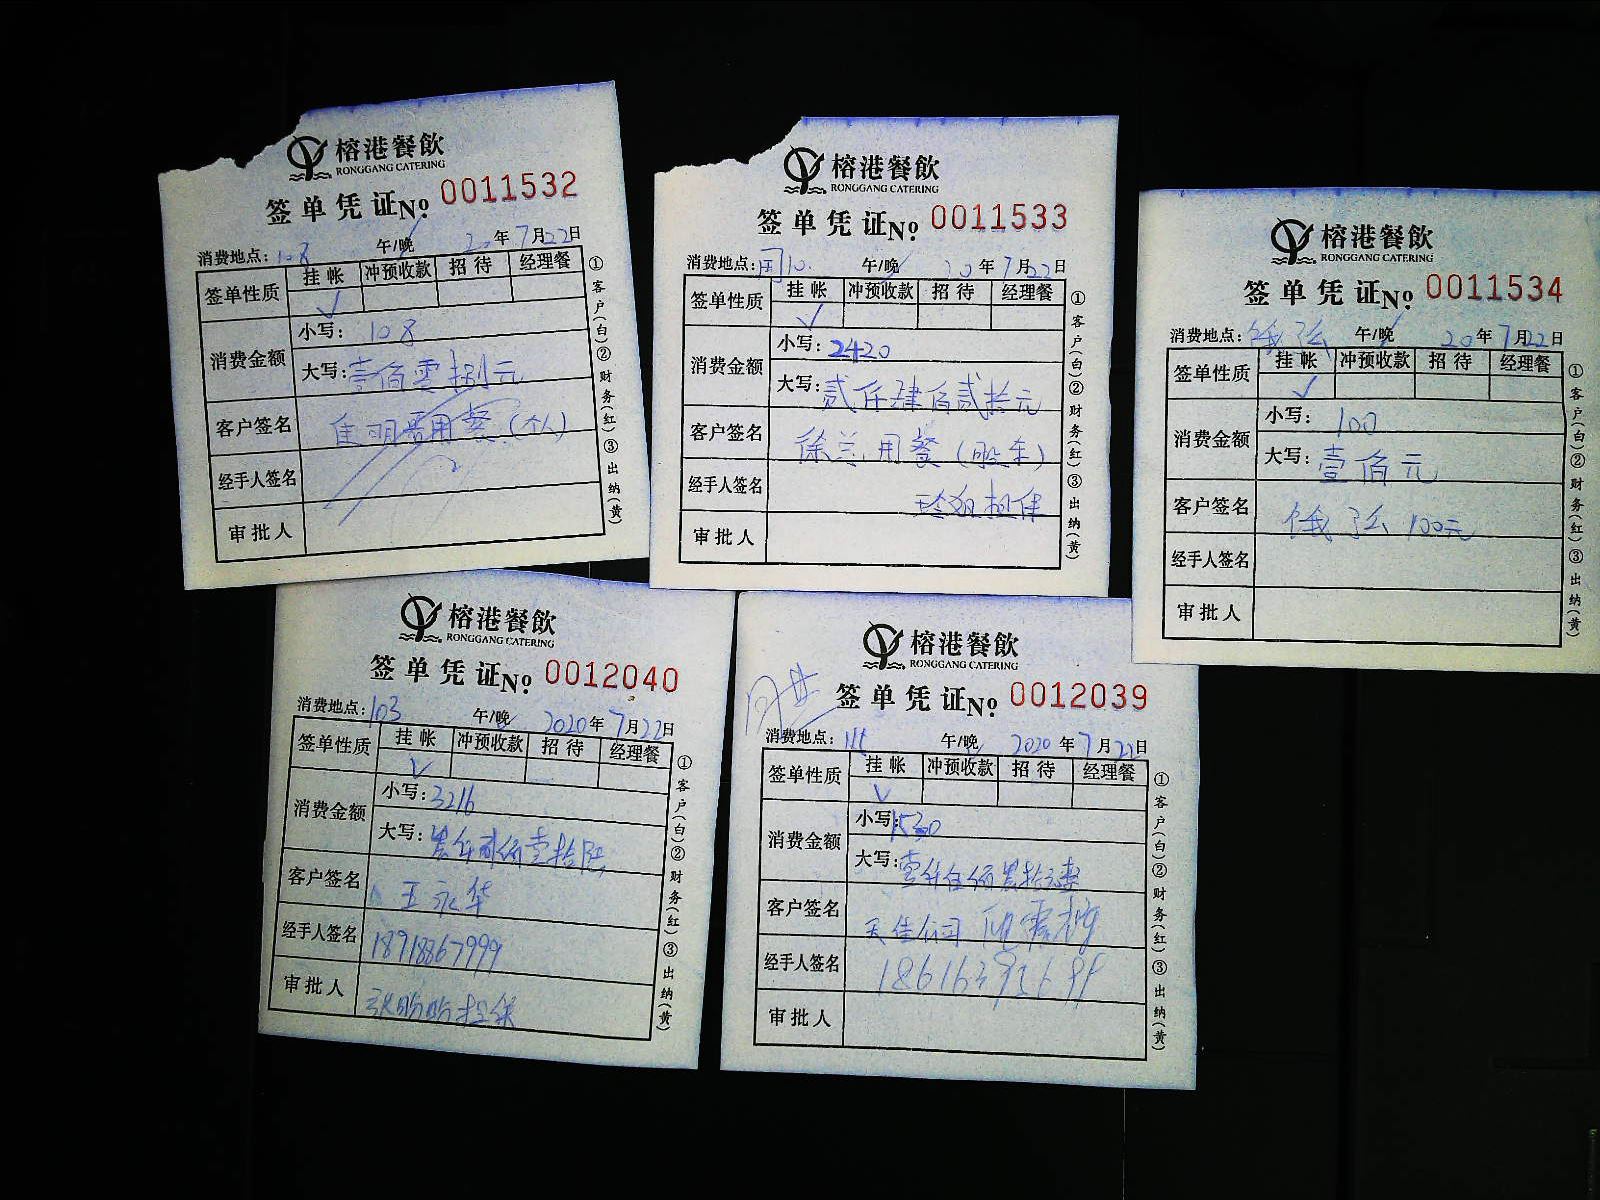 榕港餐飲
RONGGANG CATERING
签单凭证 No. 0011532
消费地点：108 午/晚 20年7月22日
签单性质 挂帐 冲预收款 招待 经理餐
✓
消费金额 小写：108
大写：壹佰零捌元
客户签名 用餐（个人）
经手人签名
审批人
①客户(白)②财务(红)③出纳(黄)
榕港餐飲
RONGGANG CATERING
签单凭证 No. 0011533
消费地点：10. 午/晚 20年7月22日
签单性质 挂帐 冲预收款 招待 经理餐
✓
消费金额 小写：2420
大写：贰仟肆佰贰拾元
客户签名 徐兰用餐（股东）
经手人签名 担保
审批人
①客户(白)②财务(红)③出纳(黄)
榕港餐飲
RONGGANG CATERING
签单凭证 No. 0011534
消费地点： 午/晚 20年7月22日
签单性质 挂帐 冲预收款 招待 经理餐
✓
消费金额 小写：100
大写：壹佰元
客户签名 100元
经手人签名
审批人
①客户(白)②财务(红)③出纳(黄)
榕港餐飲
RONGGANG CATERING
签单凭证 No. 0012040
消费地点：103 午/晚 2020年7月22日
签单性质 挂帐 冲预收款 招待 经理餐
✓
消费金额 小写：3216
大写：叁仟贰佰壹拾陆
客户签名 王永华
经手人签名 18918867999
审批人 担保
①客户(白)②财务(红)③出纳(黄)
榕港餐飲
RONGGANG CATERING
签单凭证 No. 0012039
消费地点： 午/晚 2020年7月22日
签单性质 挂帐 冲预收款 招待 经理餐
✓
消费金额 小写：1530
大写：壹仟伍佰叁拾元整
客户签名 天佳公司
经手人签名
审批人
①客户(白)②财务(红)③出纳(黄)